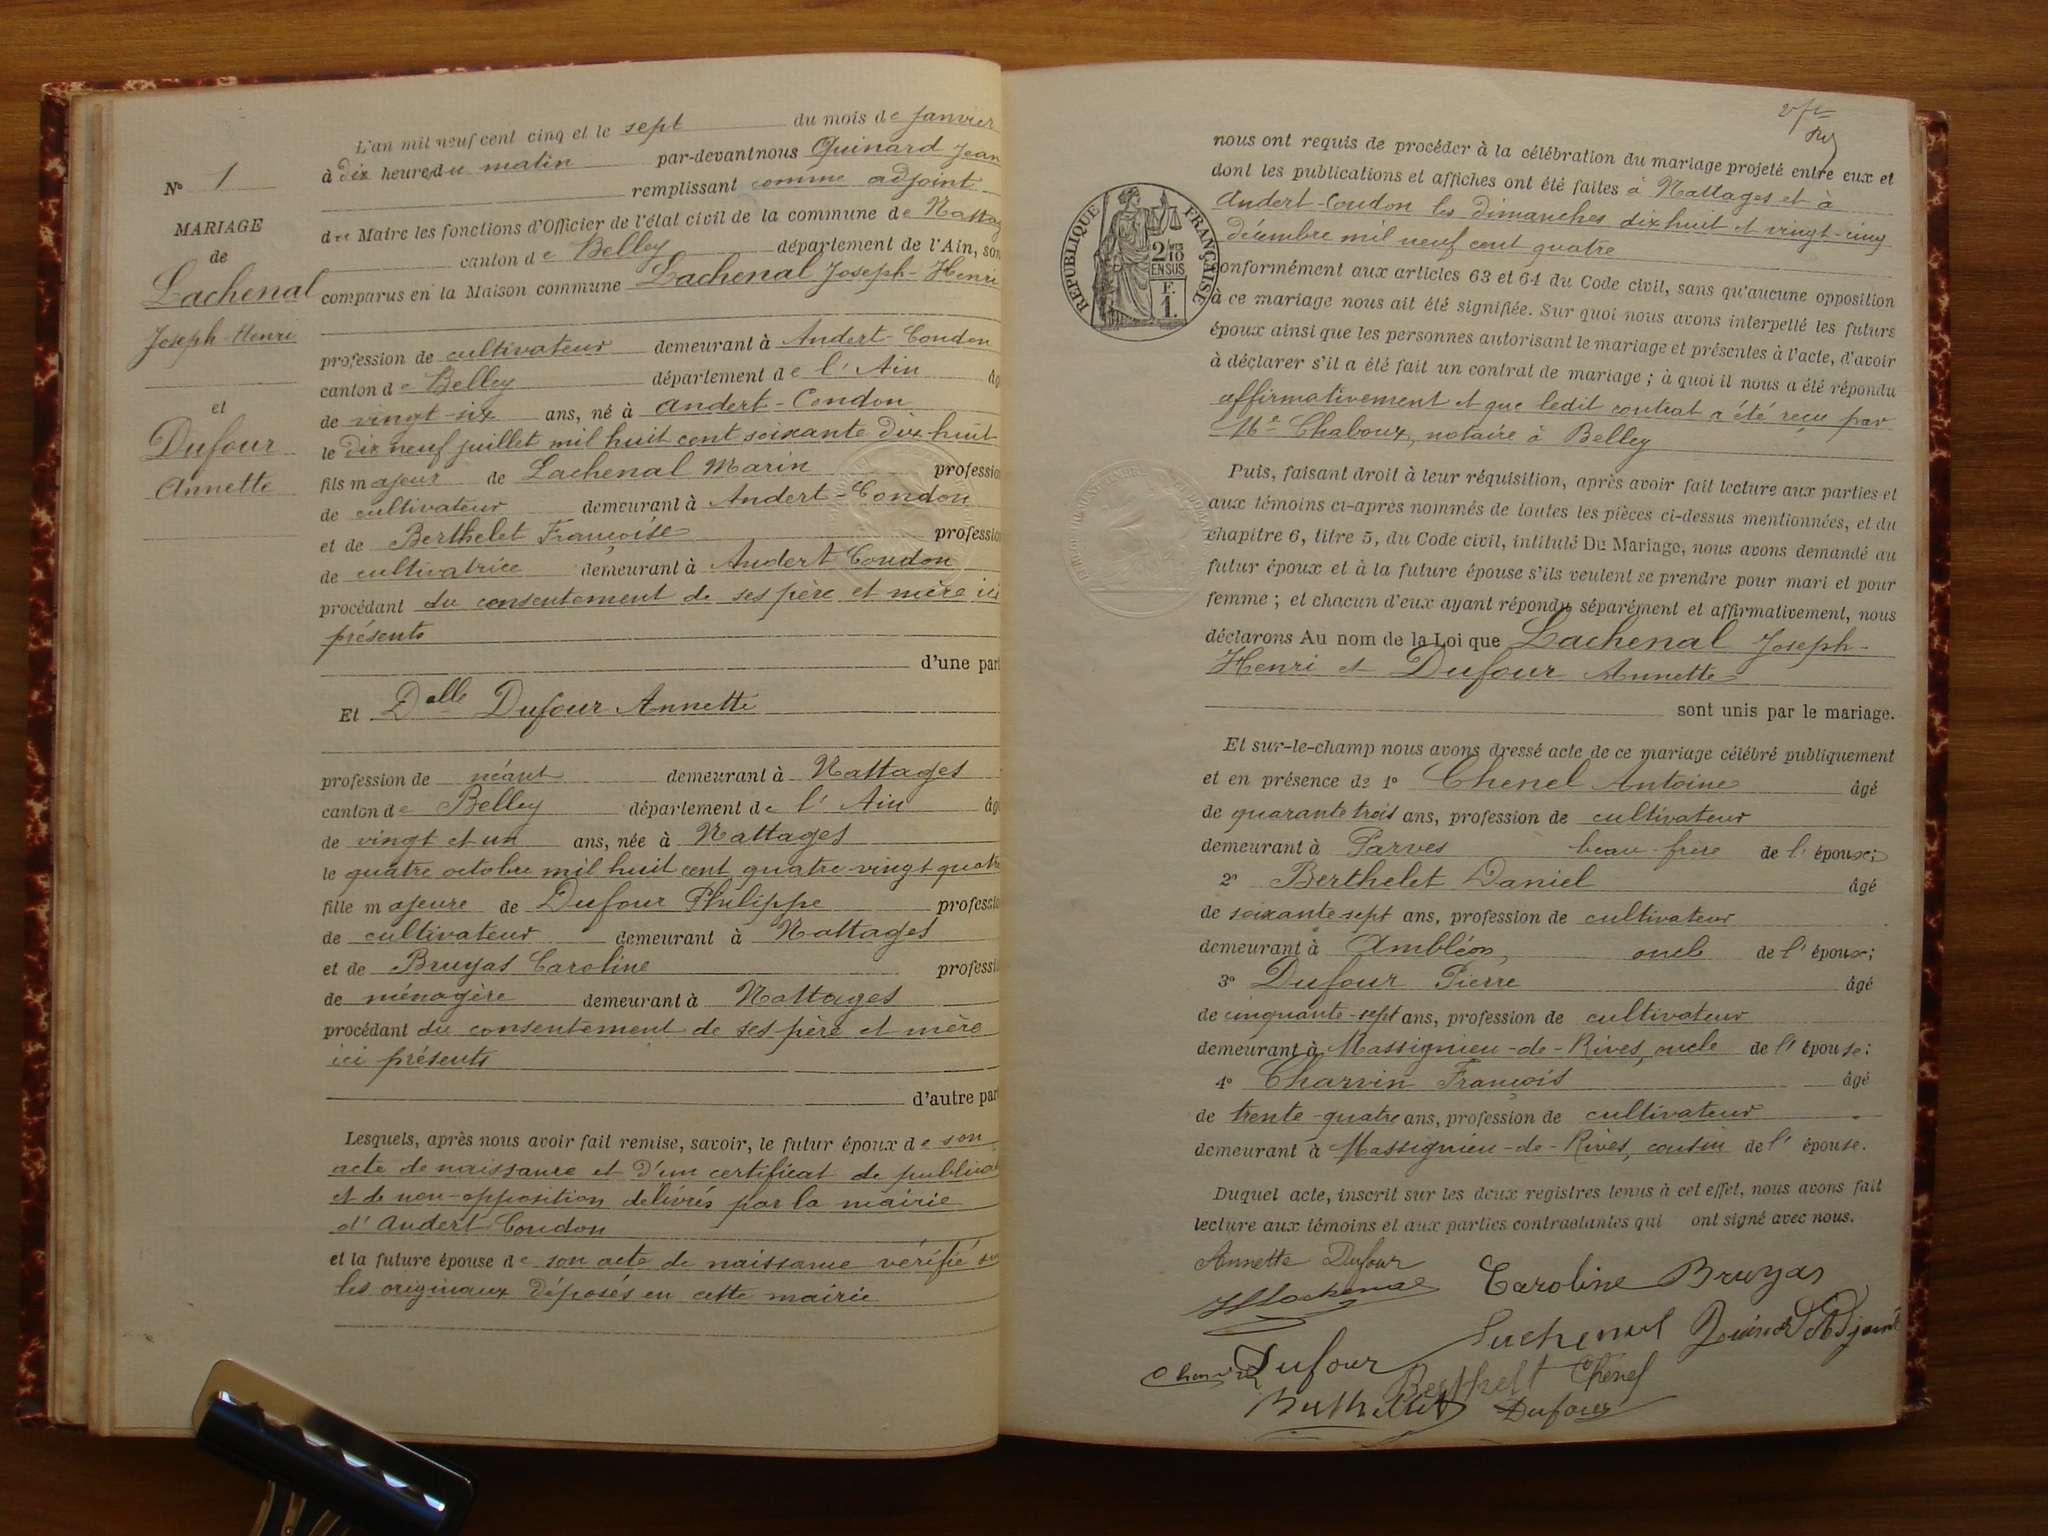 N° 1
MARIAGE
de
Lachenal
Joseph-Henri
et
Dufour
Annette
L'an mil neuf cent cinq et le sept du mois de janvier
à dix heures du matin par-devant nous Quinard Jean
remplissant comme adjoint
du Maire les fonctions d'Officier de l'état civil de la commune de Nattag
canton de Belley département de l'Ain, son
comparus en la Maison commune Lachenal Joseph-Henri
profession de cultivateur demeurant à Andert-Condon
canton de Belley département de l'Ain âg
de vingt-six ans, né à Andert-Condon
le dix neuf juillet mil huit cent soixante dix huit
fils majeur de Lachenal Marin professio
de cultivateur demeurant à Andert-Condon
et de Berthelet Françoise professio
de cultivatrice demeurant à Andert Condon
procédant du consentement de ses père et mère ici
présents
d'une part
Et Delle Dufour Annette
profession de néant demeurant à Nattages
canton de Belley département de l'Ain âg
de vingt et un ans, née à Nattages
le quatre octobre mil huit cent quatre-vingt quatre
fille majeure de Dufour Philippe professio
de cultivateur demeurant à Nattages
et de Bruyas Caroline professi
de ménagère demeurant à Nattages
procédant du consentement de ses père et mère
ici présents
d'autre part
Lesquels, après nous avoir fait remise, savoir, le futur époux de son
acte de naissance et d'un certificat de publicat
et de non-opposition délivrés par la mairie
d'Andert Condon
et la future épouse de son acte de naissance vérifié sur
les originaux déposés en cette mairie
nous ont requis de procéder à la célébration du mariage projeté entre eux et
dont les publications et affiches ont été faites à Nattages et à
Andert-Condon les dimanches dix huit et vingt-cinq
décembre mil neuf cent quatre
conformément aux articles 63 et 64 du Code civil, sans qu'aucune opposition
à ce mariage nous ait été signifiée. Sur quoi nous avons interpellé les futurs
époux ainsi que les personnes autorisant le mariage et présentes à l'acte, d'avoir
à déclarer s'il a été fait un contrat de mariage ; à quoi il nous a été répondu
affirmativement et que ledit contrat a été reçu par
Me Chaboux, notaire à Belley
RÉPUBLIQUE FRANÇAISE
2 10 MES
EN SUS
F.
1.
Puis, faisant droit à leur réquisition, après avoir fait lecture aux parties et
aux témoins ci-après nommés de toutes les pièces ci-dessus mentionnées, et du
chapitre 6, titre 5, du Code civil, intitulé Du Mariage, nous avons demandé au
futur époux et à la future épouse s'ils veulent se prendre pour mari et pour
femme ; et chacun d'eux ayant répondu séparément et affirmativement, nous
déclarons Au nom de la Loi que Lachenal Joseph-
Henri et Dufour Annette
sont unis par le mariage.
Et sur-le-champ nous avons dressé acte de ce mariage célébré publiquement
et en présence de 1° Chenel Antoine âgé
de quarante trois ans, profession de cultivateur
demeurant à Parves beau-frère de l'époux;
2° Berthelet Daniel âgé
de soixante-sept ans, profession de cultivateur
demeurant à Ambléon, oncle de l'époux;
3° Dufour Pierre âgé
de cinquante-sept ans, profession de cultivateur
demeurant à Massignieu-de-Rives, oncle de l'épouse;
4° Charvin François âgé
de trente-quatre ans, profession de cultivateur
demeurant à Massignieu-de-Rives, cousin de l'épouse.
Duquel acte, inscrit sur les deux registres tenus à cet effet, nous avons fait
lecture aux témoins et aux parties contractantes qui ont signé avec nous.
Annette Dufour
Caroline Bruyas
JHLachenal
Lachenal Quinard J Adjoint
Charvin Dufour
Berthelet Chenel
Berthelet Dufour